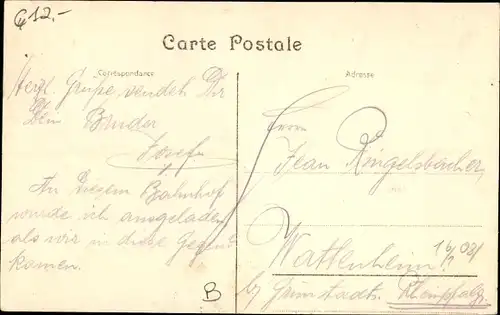 € 12,-
Carte Postale
Correspondance
Adresse
Herzl. Grüße sendet Dir
Dein Bruder
Josef
An diesem Bahnhof
wurde ich ausgeladen
als wir in diese Gegend
kamen.
Herrn
Jean Ringelsbacher
Wattenheim
by Grünstadt. Rheinpfalz.
B